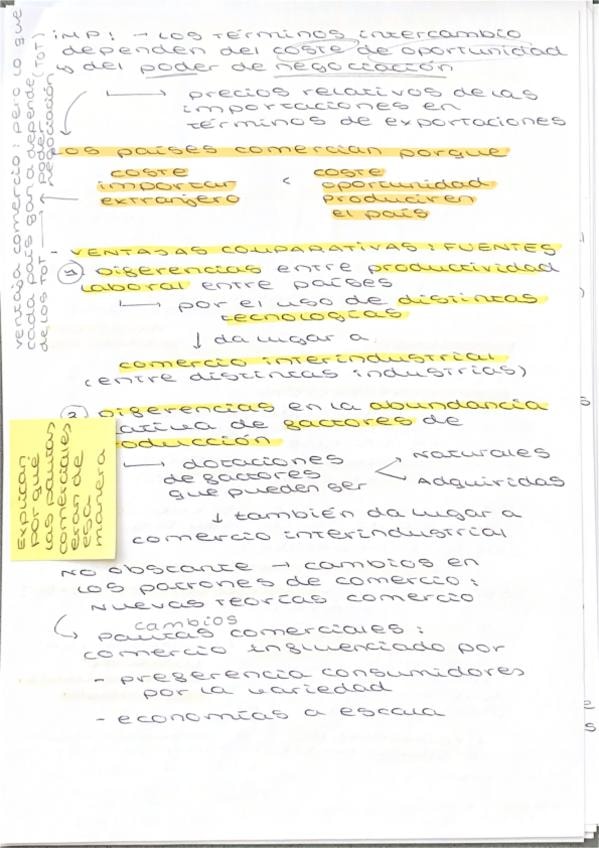 IMP: - LOS TÉRMINOS INTERCAMBIO
DEPENDEN DEL COSTE DE OPORTUNIDAD
Y DEL PODER DE NEGOCIACIÓN
PRECIOS RELATIVOS DE LAS
IMPORTACIONES EN
TÉRMINOS DE EXPORTACIONES
VENTAJA COMERCIO: PERO LO QUE
CADA PAÍS GANA DEPENDE
DE LOS TOT → PODER NEGOCIACIÓN (TOT)
LOS PAÍSES COMERCIAN PORQUE
COSTE < COSTE
IMPORTAR OPORTUNIDAD
EXTRANJERO PRODUCIR EN
EL PAÍS
- VENTAJAS COMPARATIVAS: FUENTES
1 DIFERENCIAS ENTRE PRODUCTIVIDAD
LABORAL ENTRE PAÍSES
POR EL USO DE DISTINTAS
TECNOLOGÍAS
↓ DA LUGAR A
COMERCIO INTERINDUSTRIAL
(ENTRE DISTINTAS INDUSTRIAS)
2 DIFERENCIAS EN LA ABUNDANCIA
ATIVA DE FACTORES DE
ODUCCIÓN
DOTACIONES
DE FACTORES
QUE PUEDEN SER
NATURALES
ADQUIRIDAS
↓ TAMBIÉN DA LUGAR A
COMERCIO INTERINDUSTRIAL
EXPLICAN
POR QUÉ
LAS PAUTAS
COMERCIALES
ERAN DE
ESA
MANERA
NO OBSTANTE → CAMBIOS EN
LOS PATRONES DE COMERCIO:
NUEVAS TEORÍAS COMERCIO
CAMBIOS
PAUTAS COMERCIALES:
COMERCIO INFLUENCIADO POR
- PREFERENCIA CONSUMIDORES
POR LA VARIEDAD
- ECONOMÍAS A ESCALA